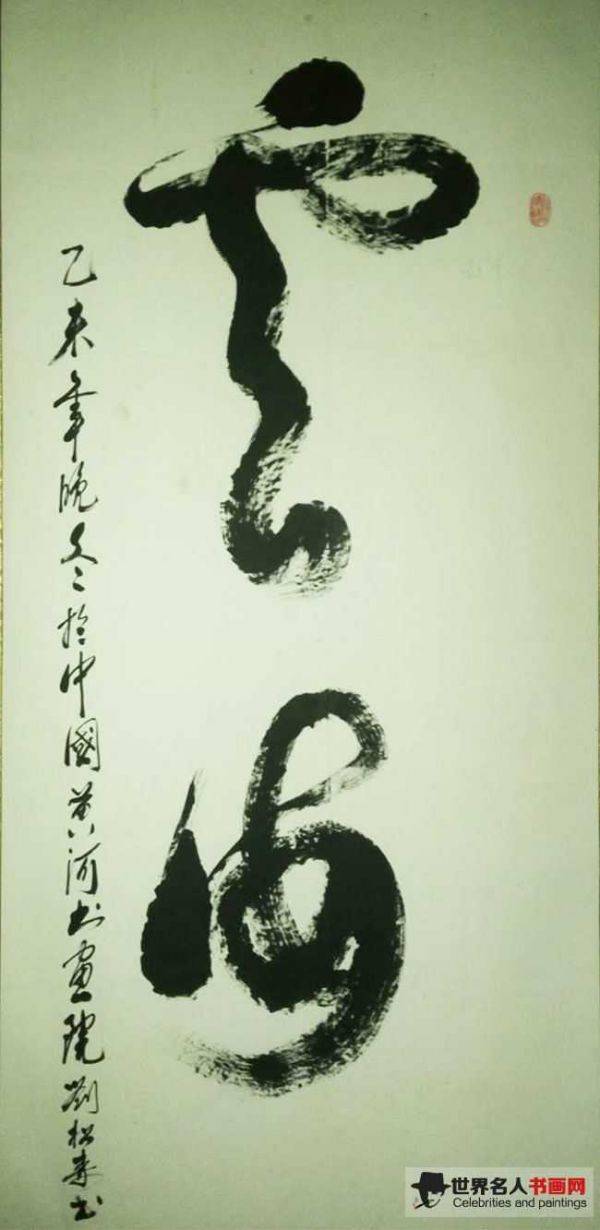 雲海
乙未年晚冬於中國黄河书畫院劉松寿书
世界名人书画网
Celebrities and paintings